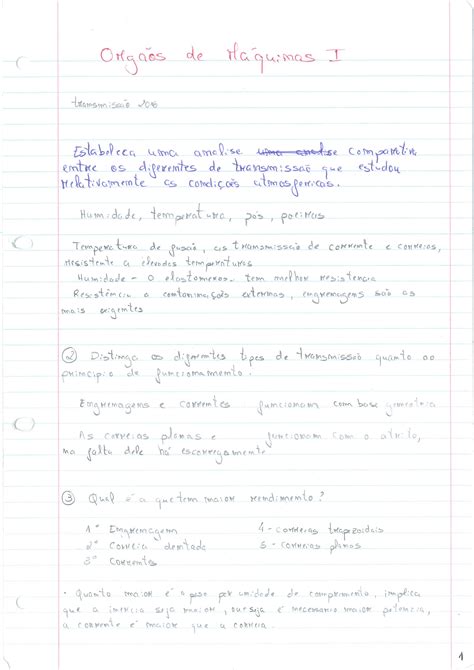 Orgãos de Máquinas I
transmissão
Estabeleça uma analise uma analise comparativa
entre os diferentes de transmissão que estudou
relativamente as condições atmosfericas.
Humidade, temperatura, pós, poeiras
Temperatura de fusão, as transmissão de corrente e correias,
resistente a elevadas temperaturas
Humidade - O elastomeros tem melhor resistencia
Resistência a contaminações externas, engrenagens são as
mais exigentes
② Distinga os diferentes tipos de transmissão quanto ao
principio de funcionamento.
Engrenagens e correntes funcionam com base geometria
As correias planas e funcionam com o atrito,
na falta dele há escorregamento
③ Qual é a que tem maior rendimento?
1º Engrenagem
2º Correia dentada
3º Correntes
4 - correias trapezoidais
5 - correias planas
• Quanto maior é o peso por unidade de comprimento, implica
que a inercia seja maior, ou seja é necessario maior potencia,
a corrente é maior que a correia.
1